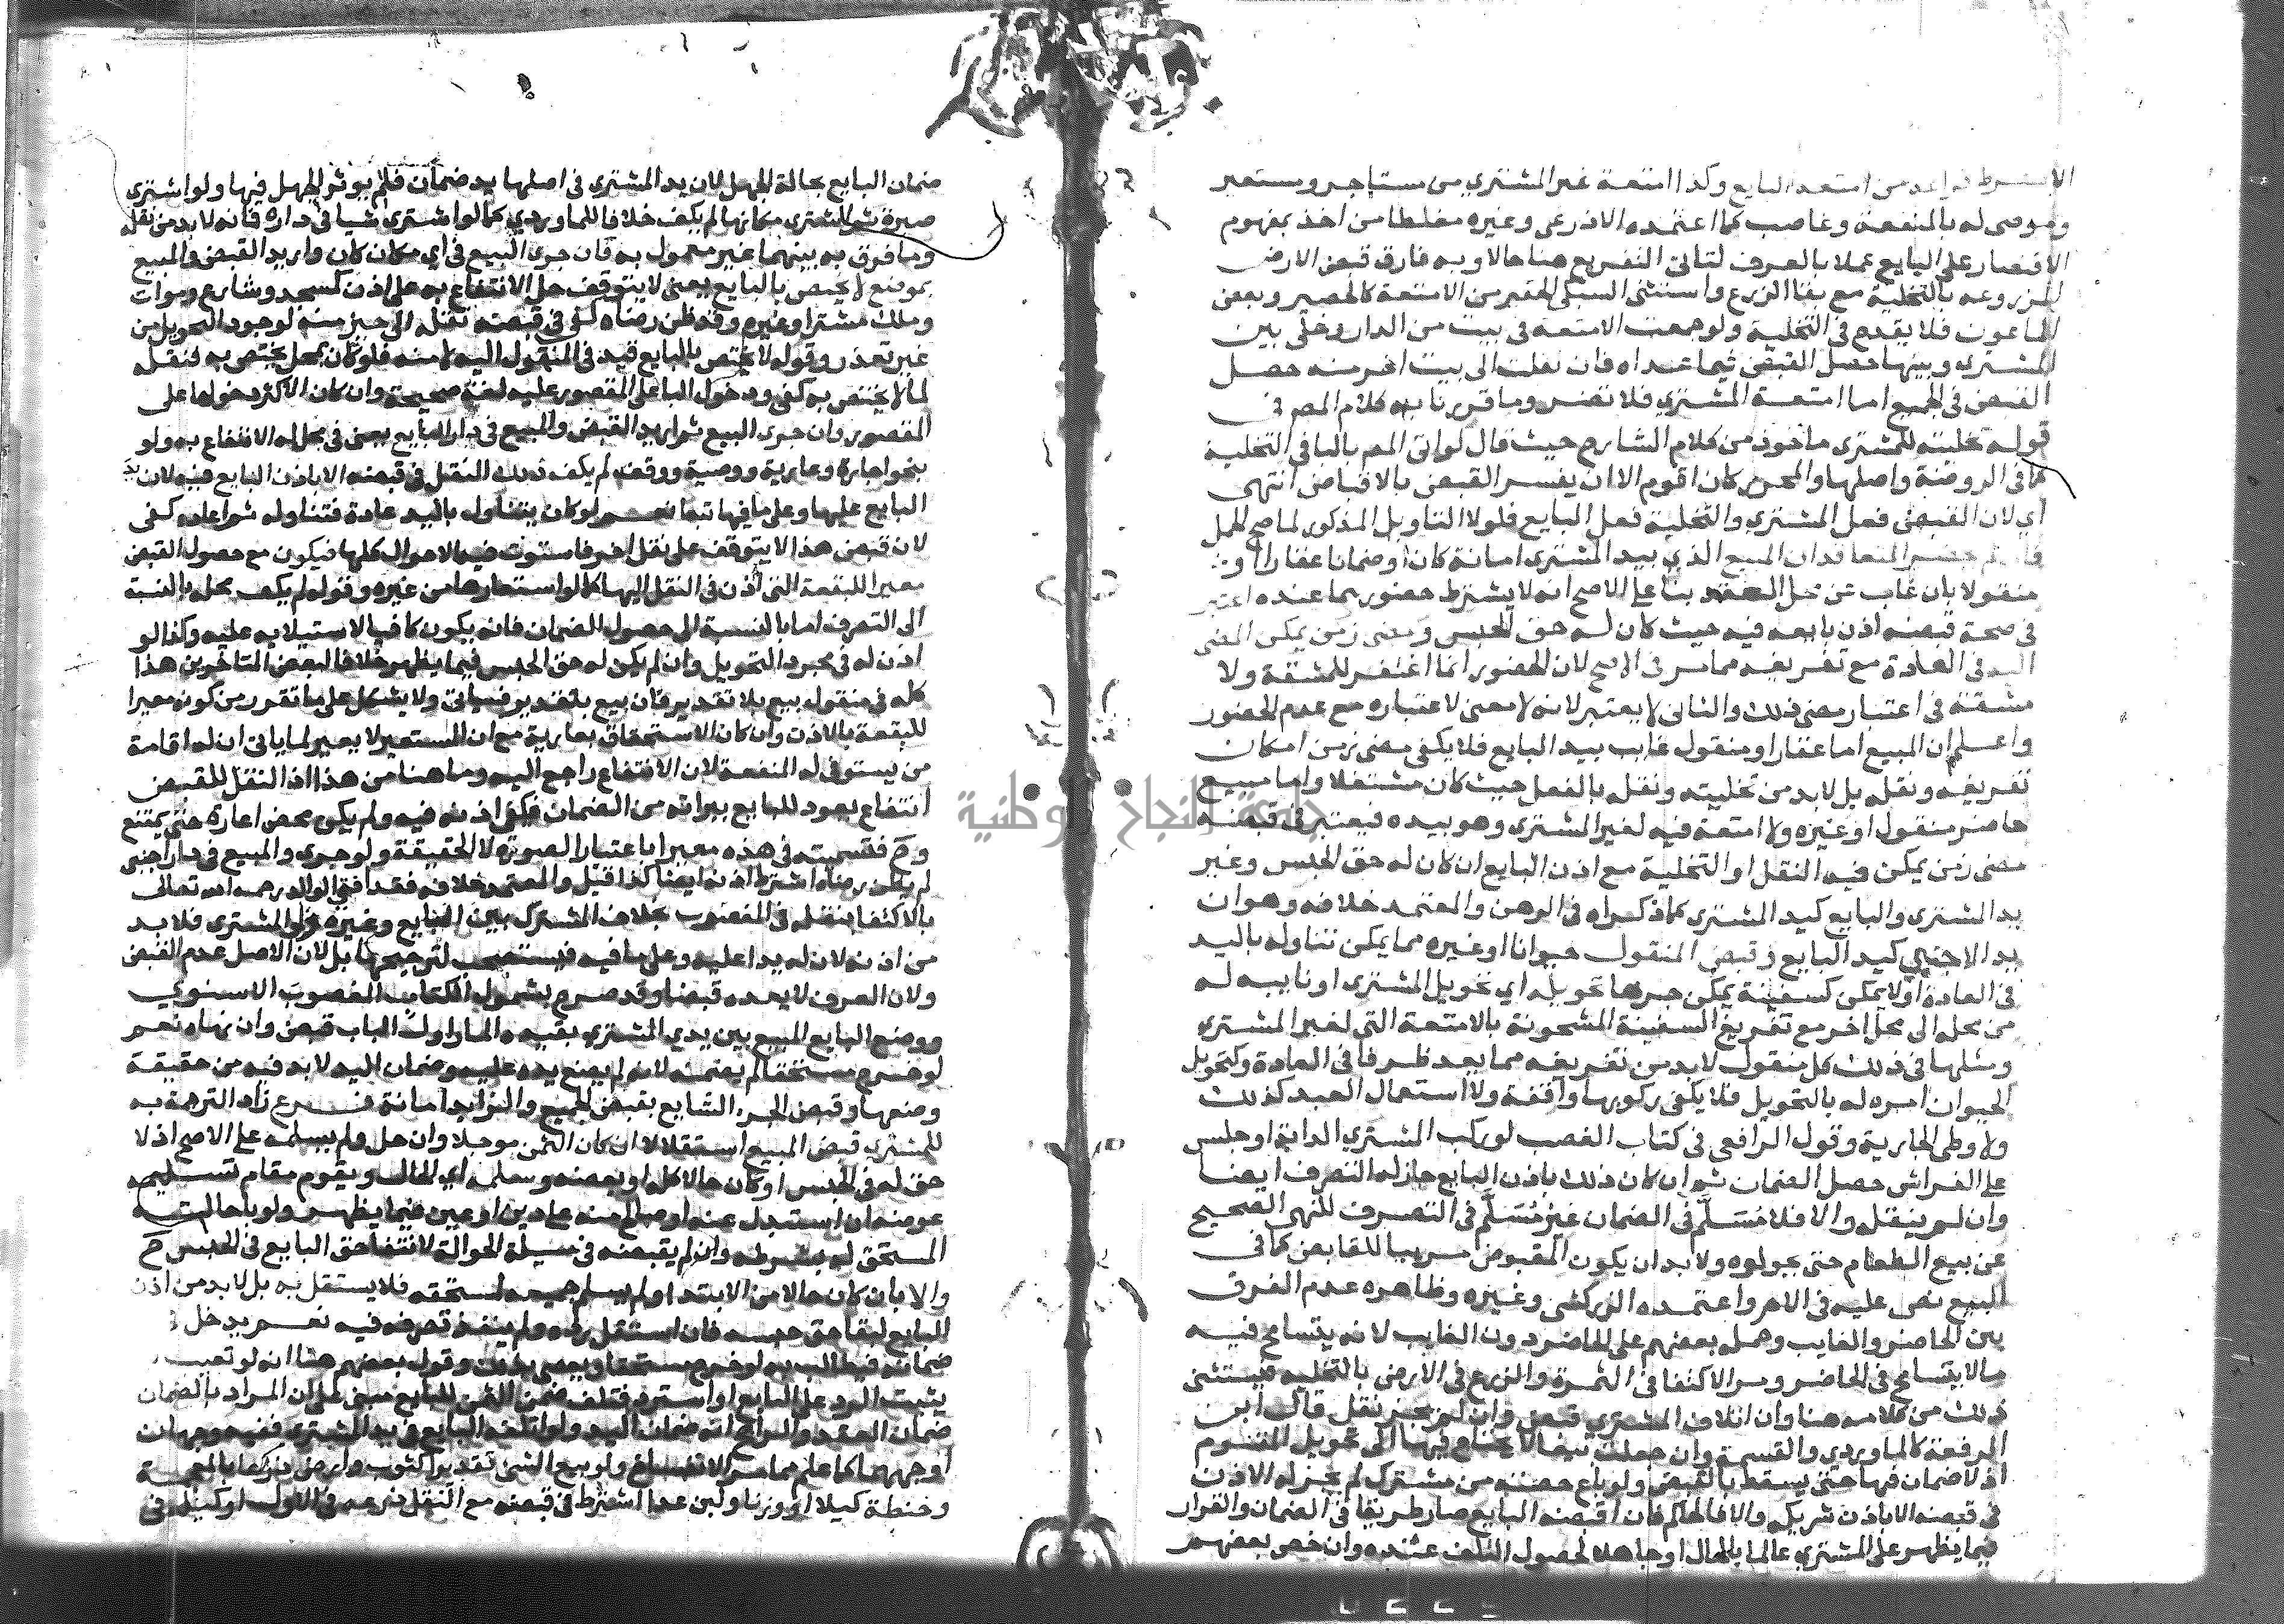 وكذا امتعة غير المشتري من مستاجر ومستعير
وموصى له بالمنفعة وغاصب كما اعتمده الاذرعى وغيره مغلطا من اخذ بمفهوم
الاقتصار على البايع عملا بالعرف لتاتى التفريغ هنا حالا وبه فارق قبض الارض
المزروعه بالتخلية مع بقا الزرع واستثنى السبكى الحقير من الامتعة كالحصير وبعض
الماعون فلا يقدح فى التخلية ولو جمعت الامتعه فى بيت من الدار وخلى بين
المشترى وبينها حصل القبض فيما عداه فان نقلت الى بيت اخر منه حصل
القبض فى الجميع اما امتعة المشتري فلا تضر وما قررنا به كلام المص فى
قوله تخليته للمشترى ماخوذ من كلام الشارح حيث قال لو اتى المص بالبا فى التخلية
كما فى الروضة واصلها والمحرر كان اقوم الا ان يفسر القبض بالاقباض انتهى
اي لان القبض فعل المشتري والتخلية فعل البايع فلولا التاويل المذكور لما صح الحمل
فان لم يحضر المتعاقدان المبيع الذي بيد المشترى امانة كان او ضمانا عقارا او
منقولا بان غاب عن محل العقد بنا على الاصح انه لا يشترط حضورهما عنده اعتبر
فى صحة قبضه اذن بايعه فيه حيث كان له حق الحبس ومضى زمن يمكن المضى
اليه فى العادة مع تفريغه مما مر فى الاصح لان الحضور انما اغتفر للمشقة ولا
مشقة فى اعتبار مضى ذلك والثانى لا يعتبر لانه لا معنى لاعتباره مع عدم الحضور
واعلم ان المبيع اما عقار او منقول غايب بيد البايع فلا يكفى مضى زمن امكان
تفريغه ونقله بل لا بد من تخليته ونقله بالفعل حيث كان مشتغلا واما مبيع
حاضر منقول او غيره ولا امتعة فيه لغير المشتري وهو بيده فيعتبر فى قبضه
مضى زمن يمكن فيه النقل او التخلية مع اذن البايع ان كان له حق الحبس وغير
يد المشترى والبايع كيد المشترى كما ذكراه فى الرهن والمعتمد خلافه وهو ان
يد الاجنبي كيد البايع وقبض المنقول حيوانا او غيره مما يمكن تناوله باليد
فى العادة او لا يمكن كسفينة يمكن جرها تحويله اي تحويل المشترى او نايبه له
من محله الى محل اخر مع تفريغ السفينة المشحونة بالامتعة التى لغير المشتري
ومثلها فى ذلك كل منقول لا بد من تفريغه مما يعد ظرفا فى العادة وكتحويل
الحيوان امره له بالتحويل فلا يكفى ركوبها واقفة ولا استعمال العبد كذلك
ولا وطى الجارية وقول الرافعى فى كتاب الغصب لو ركب المشتري الدابة او جلس
على الفراش حصل الضمان ثم ان كان ذلك باذن البايع جاز له التصرف ايضا
وان لم ينقله والا فلا مُسَلَّم فى الضمان غير مُسَلَّم فى التصرف للنهى الصحيح
عن بيع الطعام حتى يحولوه ولا بد ان يكون المقبوض مريبا للقابض كما فى
البيع نص عليه فى الام واعتمده الزركشى وغيره وظاهره عدم الفرق
بين الحاضر والغايب وحمله بعضهم على الحاضر دون الغايب لانه يتسامح فيه
مالا يتسامح فى الحاضر ومر الاكتفا فى الثمرة والزرع فى الارض بالتخليه فيستثنى
ذلك من كلامه هنا وان اتلاف المشتري قبض وان لم يجز نقل قال ابن
الرفعة كالماوردي والقسمة وان جعلت بيعا لا يحتاج فيها الى تحويل المقسوم
اذ لا ضمان فيها حتى يسقط بالقبض ولو باع حصته من مشترك لم يجز له الاذن
فى قبضه الا باذن شريكه والا فالحاكم فان اقبضه البايع صار طريقا فى الضمان والقرار
فيما يظهر على المشترى عالما بالحال او جاهلا لحصول التلف عنده وان خص بعضهم
ضمان البايع بحالة الجهل لان يد المشترى فى اصلها يد ضمان فلم يوثر الجهل فيها ولو اشترى
صبرة ثم المشترى مكانها لم يكف خلافا للماوردي كما لو اشترى شيا فى داره فانه لا بد من نقله
وما فرق به بينهما غير معمول به فان جرى البيع فى اي مكان كان واريد القبض والمبيع
بموضع لا يختص بالبايع يعنى لا يتوقف حل الانتفاع به على اذنه كمسجد وشارع وموات
وملك مشتر او غيره وقد ظن رضاه كفى فى قبضه نقله الى حيز منه لوجود التحويل من
غير تعذر وقوله لا يختص بالبايع قيد فى المنقول اليه لا منه فلو كان بمحل يختص به فنقله
لما لا يختص به كفى ودخول البا على المقصور عليه لغة صحيحة وان كان الاكثر دخولها على
المقصور وان جرى البيع ثم اريد القبض والمبيع فى دار البايع يعنى فى محل له الانتفاع به ولو
بنحو اجارة وعارية ووصية ووقف لم يكف ذلك النقل فى قبضه الا باذن البايع فيه لان يد
البايع عليها وعلى ما فيها تبعا نعم لو كان يتناول باليد عادة فتناوله ثم اعاده كفى
لان قبض هذا لا يتوقف على نقل اخر فاستوت فيه الاحوال كلها فيكون مع حصول القبض
معيرا للبقعة التى اذن فى النقل اليها كما لو استعارها من غيره وقوله لم يكف محله بالنسبة
الى التصرف اما بالنسبة الى حصول الضمان فانه يكون كافيا لاستيلايه عليه وكذا لو
اذن له فى مجرد التحويل وان لم يكن له حق الحبس فيما يظهر خلافا لبعض المتاخرين هذا
كله فى منقول بيع بلا تقدير فان بيع بتقدير فسياتى ولا يشكل على ما تقرر من كونه معيرا
للبقعة بالاذن وان كان الاستحقاق بعارية مع ان المستعير لا يعير لما ياتى ان له اقامة
من يستوفى له المنفعة لان الانتفاع راجع اليه وما هنا من هذا اذ النقل للقبض
انتفاع يعود للبايع ببراته من الضمان فكفى اذنه فيه ولم يكن محض اعارة حتى يمتنع
وح فتسميته فى هذه معيرا باعتبار الصورة لا الحقيقة ولو جرى والمبيع فى دار اجنبى
لم يظن رضاه اشترط اذنه ايضا كذا قيل والمعتمد خلافه فقد افتى الوالد رحمه الله تعالى
بالاكتفا بنقله فى المغصوب بخلاف المشترك بين البايع وغيره ولو المشتري فلا بد
من اذنه لان له يدا عليه وعلى ما فيه فيستصحب لترجيحها بل لان الاصل عدم القبض
ولان العرف لا يعده قبضا وقد صرح بشمول الكتاب المغصوب الاسنوي
ووضع البايع المبيع بين يدي المشتري بقيده المار اول الباب قبض وان نهاه نعم
لو خرج مستحقا لم يضمنه لانه لم يضع يده عليه وضمان اليد لا بد فيه من حقيقة
وضعها وقبض الجزء الشايع بقبض الجميع والزايد امانة فرع زاد الترجمة به
للمشتري قبض المبيع استقلالا ان كان الثمن موجلا وان حل ولم يسلمه على الاصح اذ لا
حق له فى الحبس او كان حالا كله او بعضه وسلمه اي الحال ويقوم مقام تسليمه
عوضه ان استبدل عنه او صالح منه على دين او عين فيما يظهر ولو باحالته
المستحق له بشرطه وان لم يقبضه فى مسيلة الحوالة لانتفا حق البايع فى الحبس ح
والا بان كان حالا من الابتدا ولم يسلم جميعه لمستحقه فلا يستقل به بل لا بد من اذن
البايع لبقا حق حبسه فان استقل رده ولم ينفذ تصرفه فيه نعم يدخل فى
ضمانه فيطالب به لو خرج مستحقا ويعصى بذلك وقول بعضهم هنا انه لو تعيب
يثبت الرد على البايع او استرد فتلف ضمن الثمن للبايع مبنى على ان المراد بالضمان
ضمان العقد والراجح انه ضمان اليد ولو اتلفه البايع فى يد المشترى ففيه وجهان
اوجههما كما علم مما مر الانفساخ ولو بيع الشى تقديرا كثوب وارض ذرعا بالمعجمة
وحنطة كيلا او وزنا ولبن عدا اشترط فى قبضه مع النقل ذرعه فى الاول او كيله فى
جامعة النجاح الوطنية